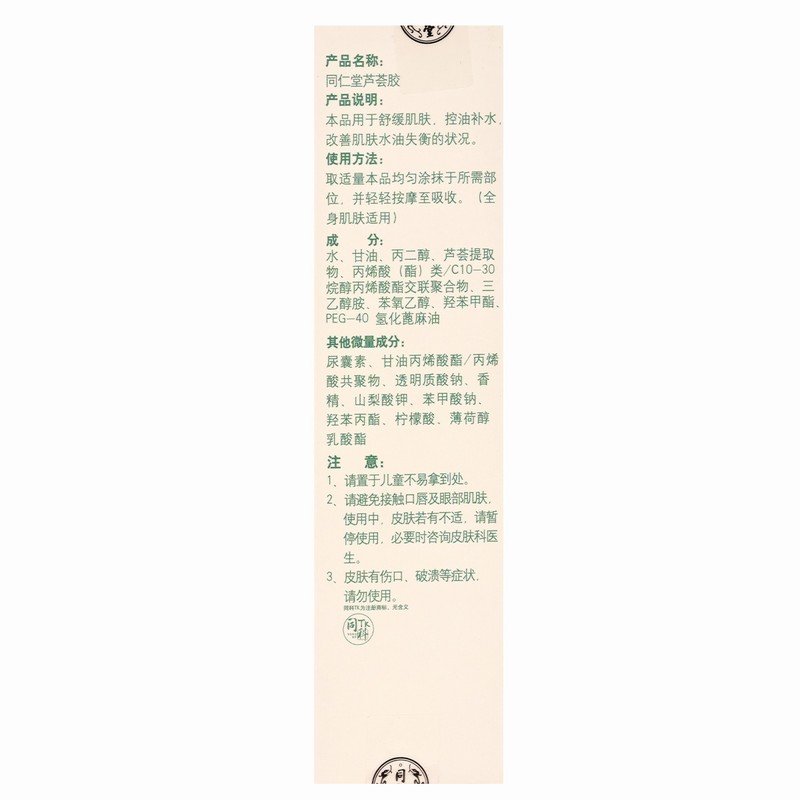 堂
产品名称:
同仁堂芦荟胶
产品说明:
本品用于舒缓肌肤，控油补水，
改善肌肤水油失衡的状况。
使用方法:
取适量本品均匀涂抹于所需部
位，并轻轻按摩至吸收。（全
身肌肤适用）
成 分:
水、甘油、丙二醇、芦荟提取
物、丙烯酸（酯）类/C10-30
烷醇丙烯酸酯交联聚合物、三
乙醇胺、苯氧乙醇、羟苯甲酯、
PEG-40 氢化蓖麻油
其他微量成分:
尿囊素、甘油丙烯酸酯/丙烯
酸共聚物、透明质酸钠、香
精、山梨酸钾、苯甲酸钠、
羟苯丙酯、柠檬酸、薄荷醇
乳酸酯
注 意:
1、请置于儿童不易拿到处。
2、请避免接触口唇及眼部肌肤，
使用中，皮肤若有不适，请暂
停使用，必要时咨询皮肤科医
生。
3、皮肤有伤口、破溃等症状，
请勿使用。
同科TK为注册商标，无含义
同TK
科
同